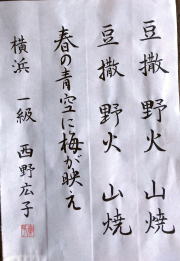 豆撒 野火 山焼
豆撒 野火 山焼
春の青空に梅が映え
横浜 一級 西野広子